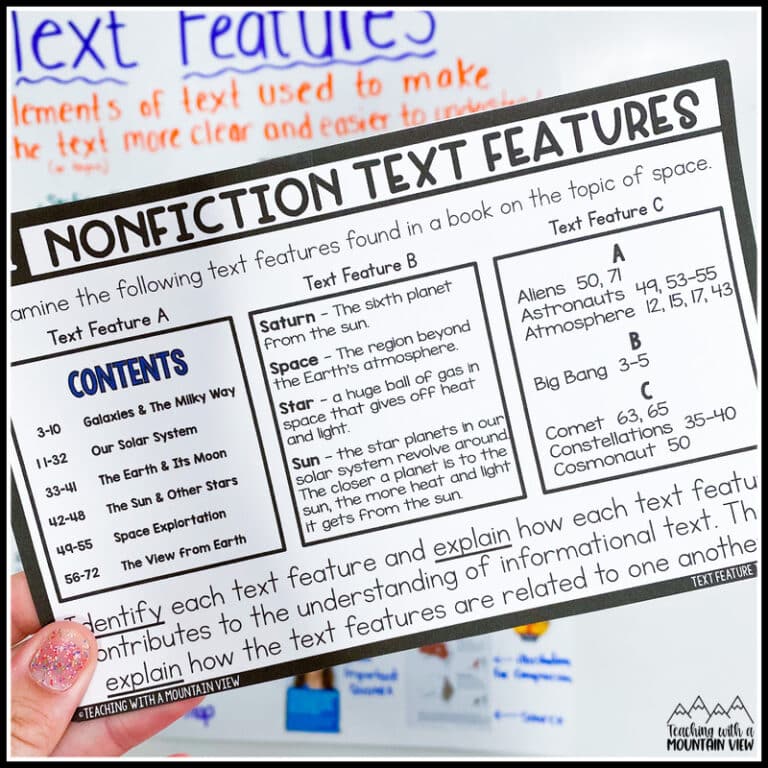 Text Features
elements of text used to make
the text more clear and easier to
NONFICTION TEXT FEATURES
amine the following text features found in a book on the topic of space.
Text Feature A
CONTENTS
3-10 Galaxies & The Milky Way
11-32 Our Solar System
33-41 The Earth & Its Moon
42-48 The Sun & Other Stars
49-55 Space Explortation
56-72 The View from Earth
Text Feature B
Saturn – The sixth planet
from the sun.
Space – The region beyond
the Earth's atmosphere.
Star – a huge ball of gas in
space that gives off heat
and light.
Sun – the star planets in our
solar system revolve around.
The closer a planet is to the
sun, the more heat and light
it gets from the sun.
Text Feature C
A
Aliens 50, 71
Astronauts 49, 53-55
Atmosphere 12, 15, 17, 43
B
Big Bang 3-5
C
Comet 63, 65
Constellations 35-40
Cosmonaut 50
Identify each text feature and explain how each text featu
ontributes to the understanding of informational text. Th
explain how the text features are related to one anothe
TEXT FEATURE
©TEACHING WITH A MOUNTAIN VIEW
Teaching with a
MOUNTAIN VIEW